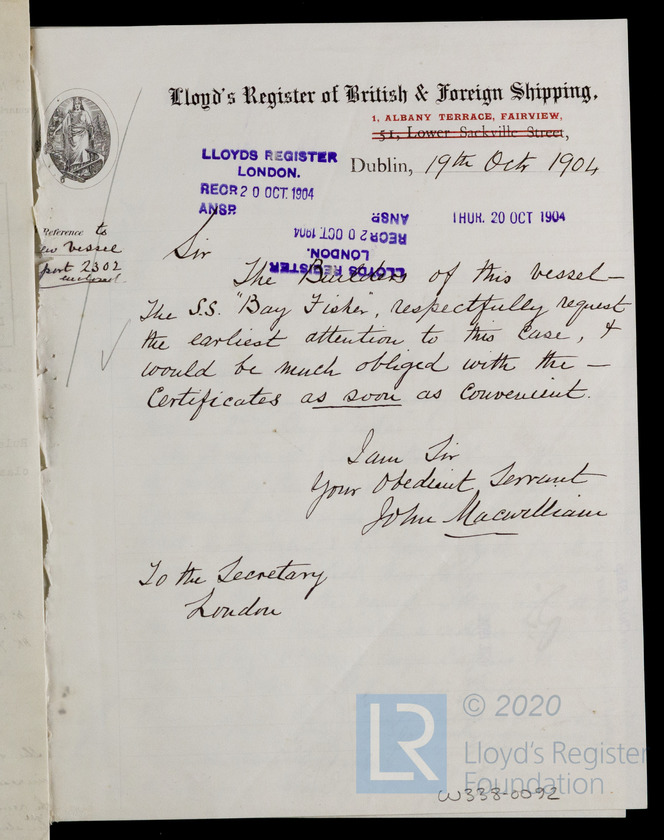 Lloyd's Register of British & Foreign Shipping.
1, ALBANY TERRACE, FAIRVIEW,
51, Lower Sackville Street,
Dublin, 19th Octr 1904
LLOYDS REGISTER
LONDON.
RECR 20 OCT. 1904
ANSR
THUR. 20 OCT 1904
LLOYDS REGISTER
LONDON.
RECR 20 OCT 1904
ANSR
Reference to
ew vessel
port 2302
enclosed
Sir
The Builders of this vessel —
The S.S. "Bay Fisher", respectfully request
the earliest attention to this Case, &
would be much obliged with the —
Certificates as soon as Convenient.
I am Sir
Your Obedient Servant
John Macwilliam
To the Secretary
London
LR
© 2020
Lloyd's Register
Foundation
W338-0092